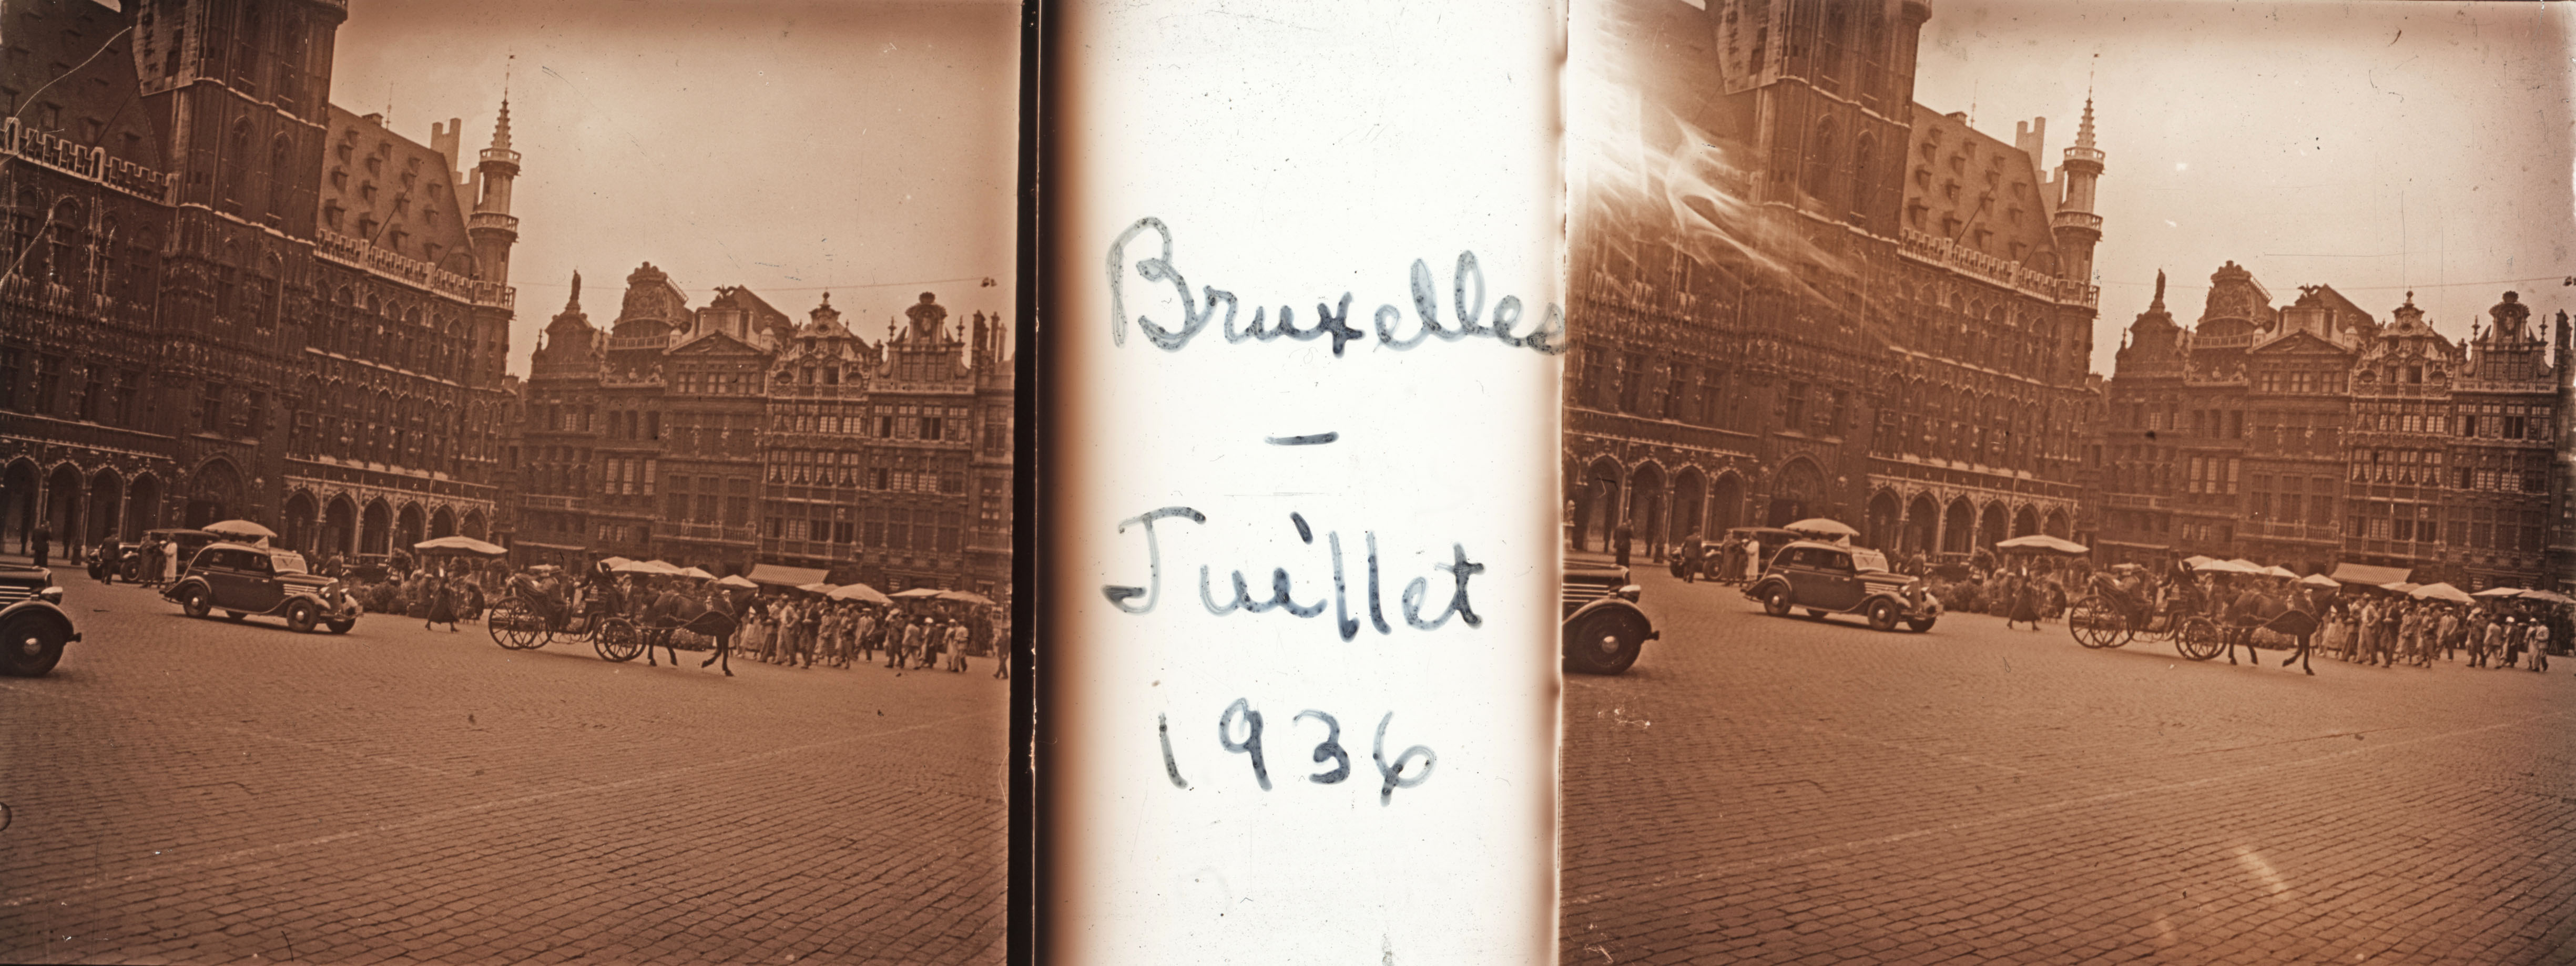 Bruxelles
—
Juillet
1936